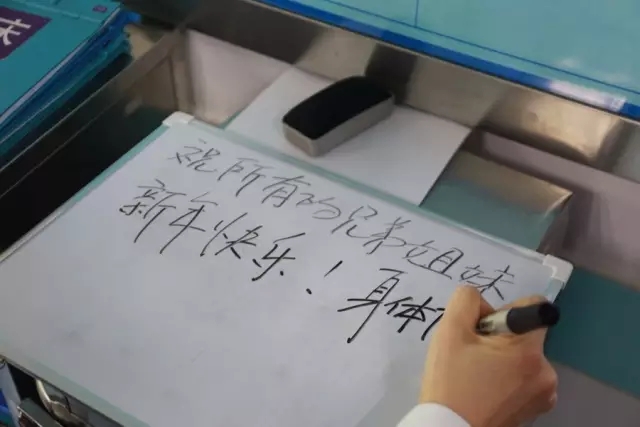 祝所有的兄弟姐妹
新年快乐！身体